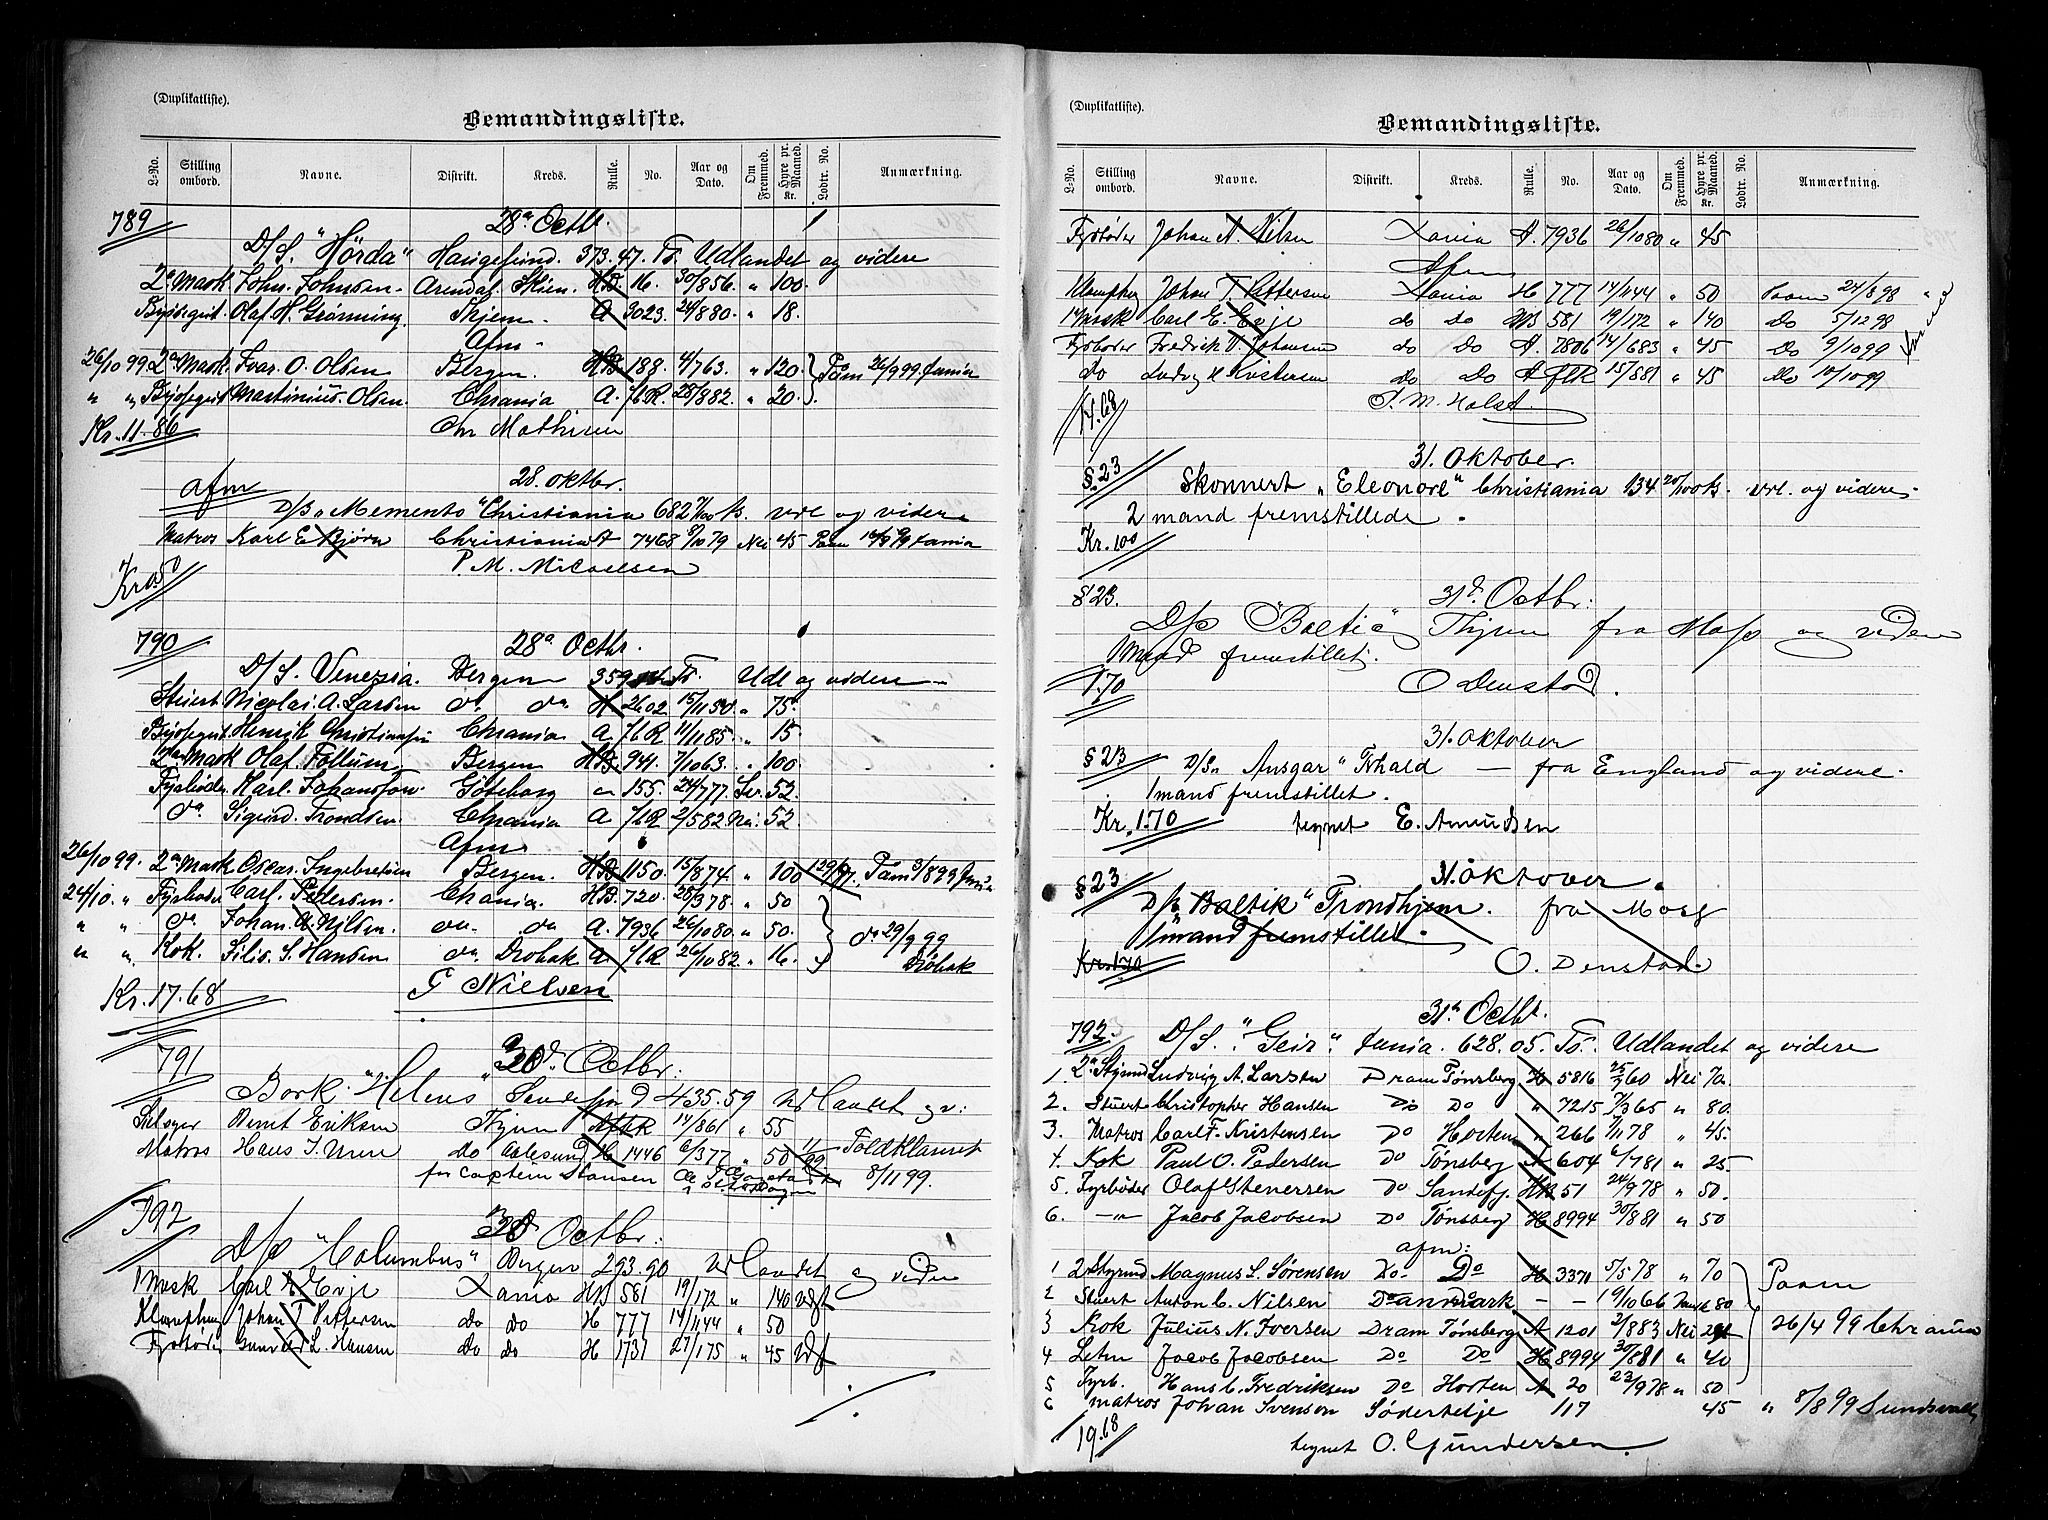 (Duplikatliste).
Bemandingsliste.
L-No. Stilling ombord. Navne. Distrikt. Kreds. Rulle. No. Aar og Dato. Om Fremmed. Hyre pr. Maaned. Kr. Lodtr. No. Anmærkning.
789 28a Octbr.
D/S. "Hörda" Haugesund. 373.47. To. Udlandet og videre
2a Mask. John. Johnsen. Arendal. Skien. HB. 16. 30/856. " 100.
Olaf H. Grönning. Thjem. A 3023. 24/880. " 18.
Afm.
26/10 99. 2a Mask. Ivar. O. Olsen Bergen. HB. 188. 4/763. " 120. Paam 26/9 99.
" " Martinius. Olsen. Chrania A. flR. 28/882. " 20.
Kr. 11.86 Chr Mathisen
afm 28. oktbr.
D/S „Memento" Christiania 682 71/100 Udl og videre
Matros Karl E Bjørn Christiania A 7468 8/10 79 Nei 45 Paam
P. M. Micaelsen
790 28a Octbr.
D/S. Venezia. Bergen 359 To. Udl og videre
Stuert Nicolai. A. Larsen do do H. 2602 15/1150. " 75.
Henrik Christiansen Chrania A. flR 11/1185. " 15
2a Mask Olaf. Follum. Bergen HB. 941. 7/1063. " 100.
Fyrböder. Karl. Johansson. Göteborg 155. 24/777. Sv. 52.
do Sigurd. Trondsen. Chrania A. flR 2/582. Nei. 52
Afm.
26/10 99. 2a Mask Oscar. Ingebretsen Bergen. HB. 1150. 15/874. " 100 Paam 3/8 99
24/10. " Fyrböder Carl. Pettersen. Chrania. HB. 720. 28/378. " 50
" " do Johan. A. Nilsen. do. do A. 7936 26/1080. " 50. do 29/9 99
" " Kok. Silis. S. Hansen do. Drøbak A. flR 26/1082. " 16. Dröbak
Kr. 17.68 G Nielsen
791 30d. Octbr:
Bark "Helens" 435.59 Udlandet og v:
Bernt Eriksen Thjem 14/861 " 55
Matros Hans I. Do Aalesund H 1446 6/377 " 50 Toldklareret
for Captein Hansen 8/11 99.
792 30 Octbr:
D/S "Columbus" Bergen 293.90 Udlandet og viden
1 Mask Carl E Evje Xania HB 581 19/172 " 140 Udf
Johan T Pettersen do do H 777 14/1144 " 50
Gunerd L. Hansen do do H 1731 27/175 " 45 Udf
(Duplikatliste).
Bemandingsliste.
L-No. Stilling ombord. Navne. Distrikt. Kreds. Rulle. No. Aar og Dato. Om Fremmed. Hyre pr. Maaned. Kr. Lodtr. No. Anmærkning.
Fyrböder Johan A. Nilsen Xania A. 7936 26/1080 " 45
Afm
Johan T. Pettersen Xania H 777 14/1144 " 50 Paam 24/8 98
1 Mask Carl E. Evje do Do HB 581 19/172 " 140 Do 5/12 98
Fyrböder Fredrik V. Johansen do Do A. 7806 14/683 " 45 Do 9/10 99
do Ludvig H Kristensen Do Do A flR 15/881 " 45 Do 10/10 99
14.68 P. M. Holst.
31. Oktober.
§.23 Skonnert „Eleonore" Christiania 134 20/100 Udl. og videre
2 mand fremstillede.
Kr. 100
§23. 31d. Octbr:
D/S "Baltic" Thjem fra Moss og viden
1 Mand fremstillet.
1.70 O Denstad.
31. oktober
§23 D/S „Ansgar" Fthald — fra England og videre.
1 mand fremstillet.
Kr. 1.70 tegnet E. Amundsen
§23 31. Oktober.
D/S „Baltik" Trondhjem. fra Moss
1 mand fremstillet.
Kr. 1.70 O. Denstad.
31a Octbr.
792. D/S. "Geir". 628.05. To. Udlandet og videre
1. 2a Styrmd Ludvig A. Larsen Dram Tønsberg H 5816 25/9 60 Nei 70
2. Stuert Christopher Hansen Do Do " 7215 7/3 65 " 80.
3. Matros Carl F. Kristensen Do Horten " 266 7/11 78 " 45.
4. Kok Paul O. Pedersen Do Tønsberg A 604 6/781 " 25.
5. Fyrböder Olaf Stenersen Do Sandefj. HB 51 24/978 " 50.
6. —"— Jacob Jacobsen Do Tønsberg H 8994 30/881 " 50
afm:
1 2 Styrmd Magnus L. Sørensen Do Do H 3371 5/578 " 70 Paam
2 Stuert Anton C. Nilsen Danmark — — 19/1066 Dansk 80
3 Kok Julius N. Iversen Dram Tønsberg A 1201 2/883 Nei 26/4 99 Chrania
4 Letm Jacob Jacobsen Do Do H 8994 30/881 " 40
5 Fyrb. Hans C. Fredriksen Do Horten A 20 23/978 " 50
6 matros Johan Svenson Södertelje 117 45 " 8/8 99 Sundsvall
19.68 tegnet O. Gundersen.